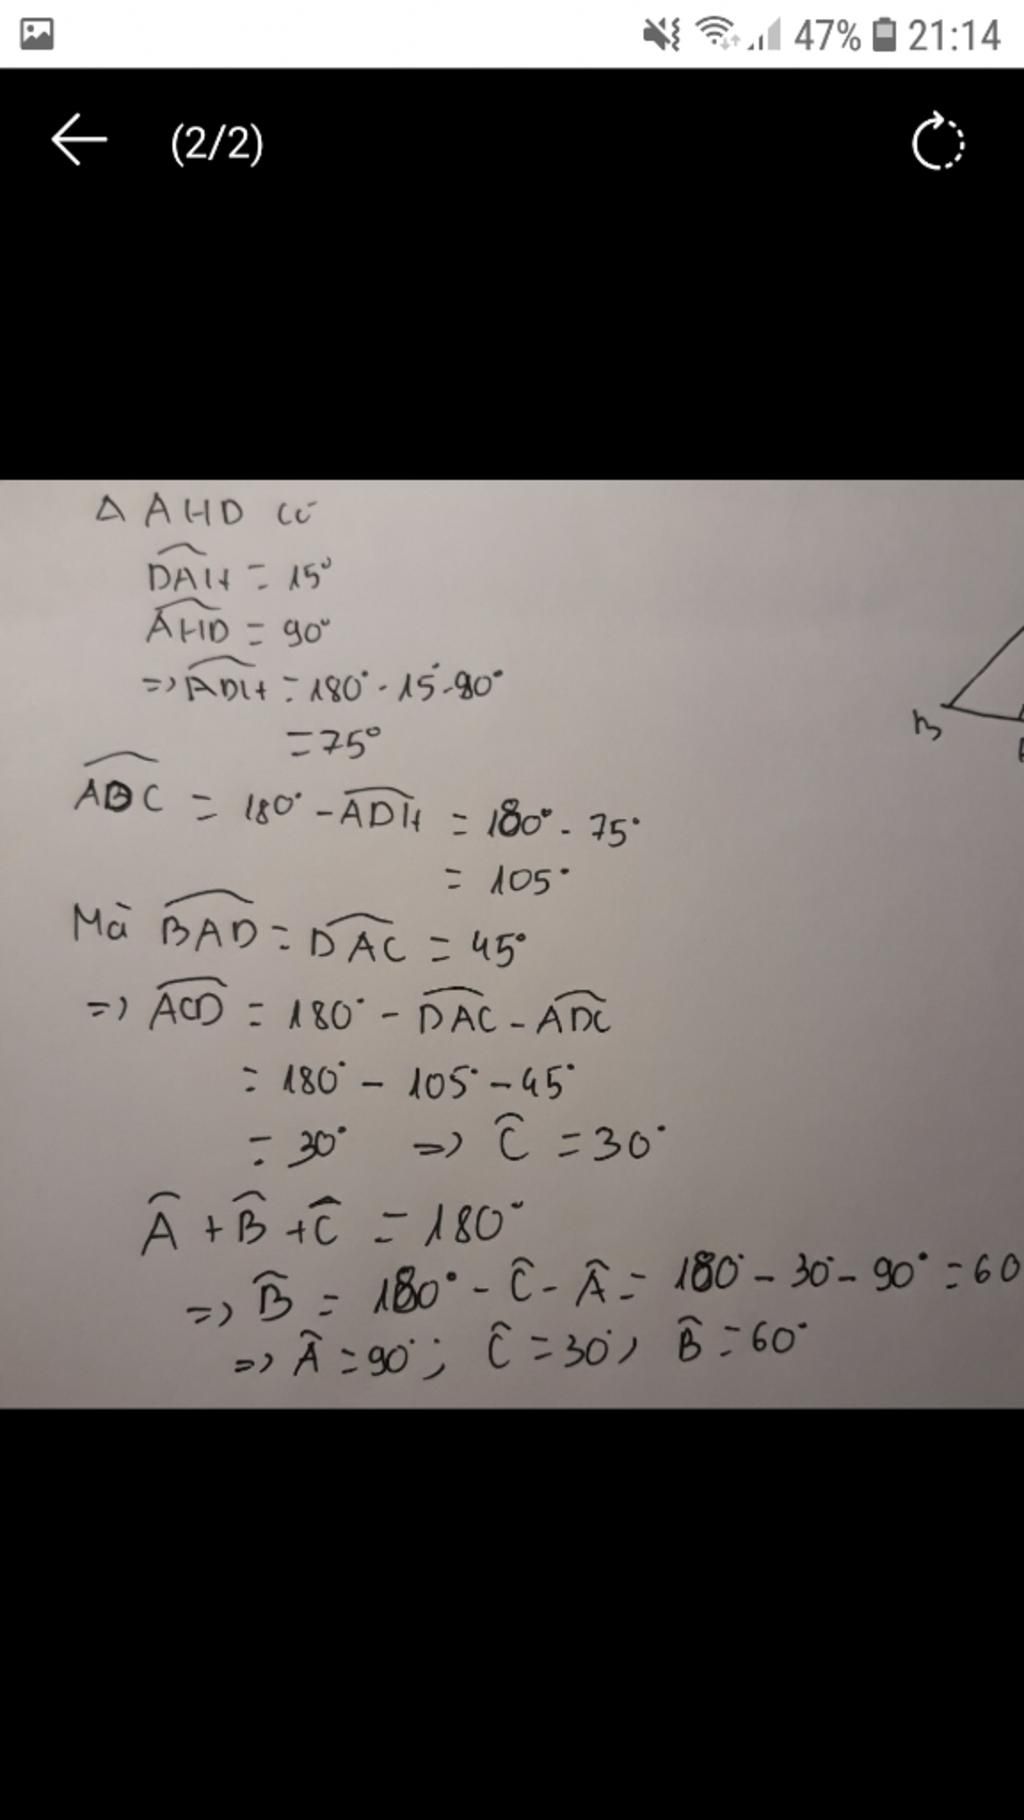 47% 21:14
(2/2)
Δ AHD có
DAH = 15°
AHD = 90°
=> ADH = 180° - 15° - 90°
= 75°
ADC = 180° - ADH = 180° - 75°
= 105°
Mà BAD = DAC = 45°
=> ACD = 180° - DAC - ADC
= 180° - 105° - 45°
= 30° => Ĉ = 30°
B
Â + B̂ + Ĉ = 180°
=> B̂ = 180° - Ĉ - Â = 180° - 30° - 90° = 60
=> Â = 90°; Ĉ = 30°, B̂ = 60°